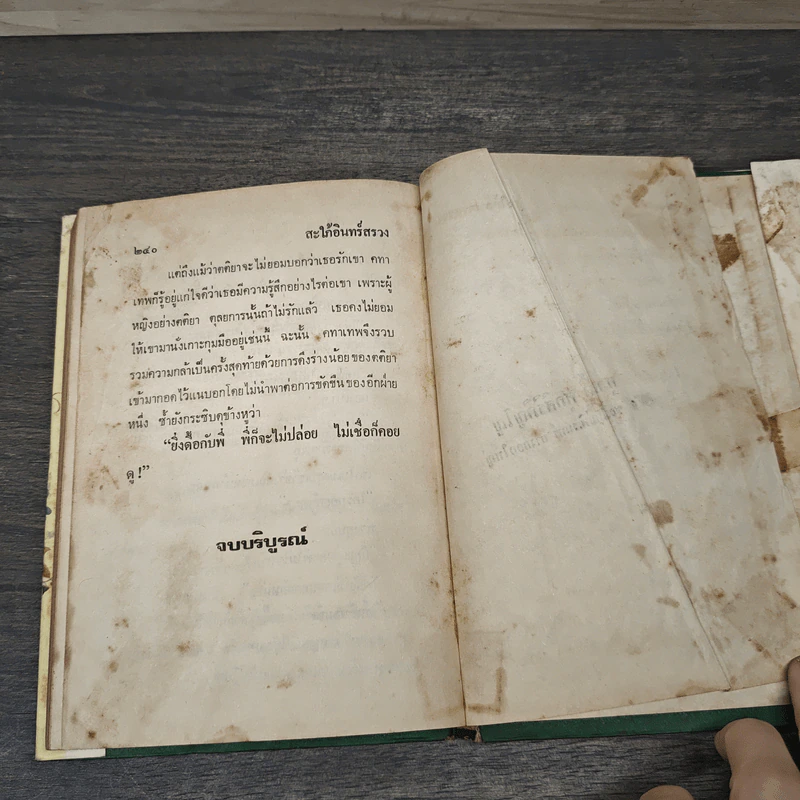 ๒๔๐
สะใภ้อินทร์สรวง
แต่ถึงแม้ว่าตติยาจะไม่ยอมบอกว่าเธอรักเขา คทา
เทพก็รู้อยู่แก่ใจดีว่าเธอมีความรู้สึกอย่างไรต่อเขา เพราะผู้
หญิงอย่างตติยา ตุลยการนั้นถ้าไม่รักแล้ว เธอคงไม่ยอม
ให้เขามานั่งเกาะกุมมืออยู่เช่นนี้ ฉะนั้น คทาเทพจึงรวบ
รวมความกล้าเป็นครั้งสุดท้ายด้วยการดึงร่างน้อยของตติยา
เข้ามากอดไว้แนบอกโดยไม่นำพาต่อการขัดขืนของอีกฝ่าย
หนึ่ง ซ้ำยังกระซิบดุข้างหูว่า
“ยิ่งดื้อกับพี่ พี่ก็จะไม่ปล่อย ไม่เชื่อก็คอย
ดู!”
จบบริบูรณ์